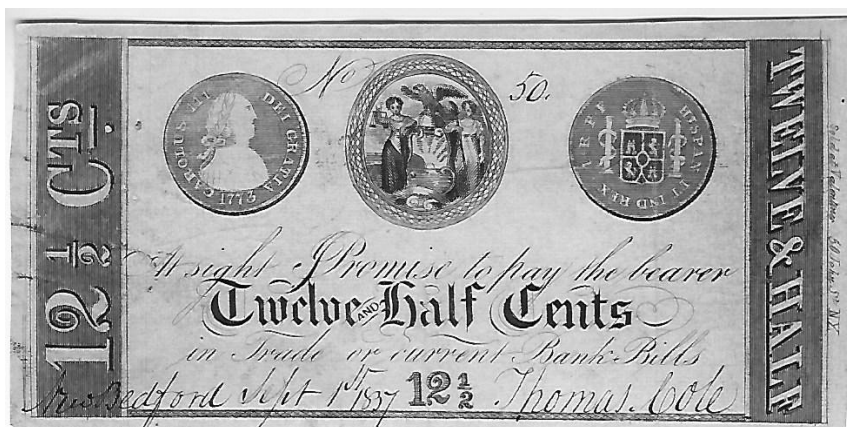 12 ½ CTS.
No 50.
CAROLUS III DEI GRATIA
1773
HISPAN ET IND REX
At sight I Promise to pay the bearer
Twelve AND Half Cents
in Trade or current Bank Bills
New Bedford Sept 1st 1837 12 ½ Thomas Cole
TWELVE & HALF